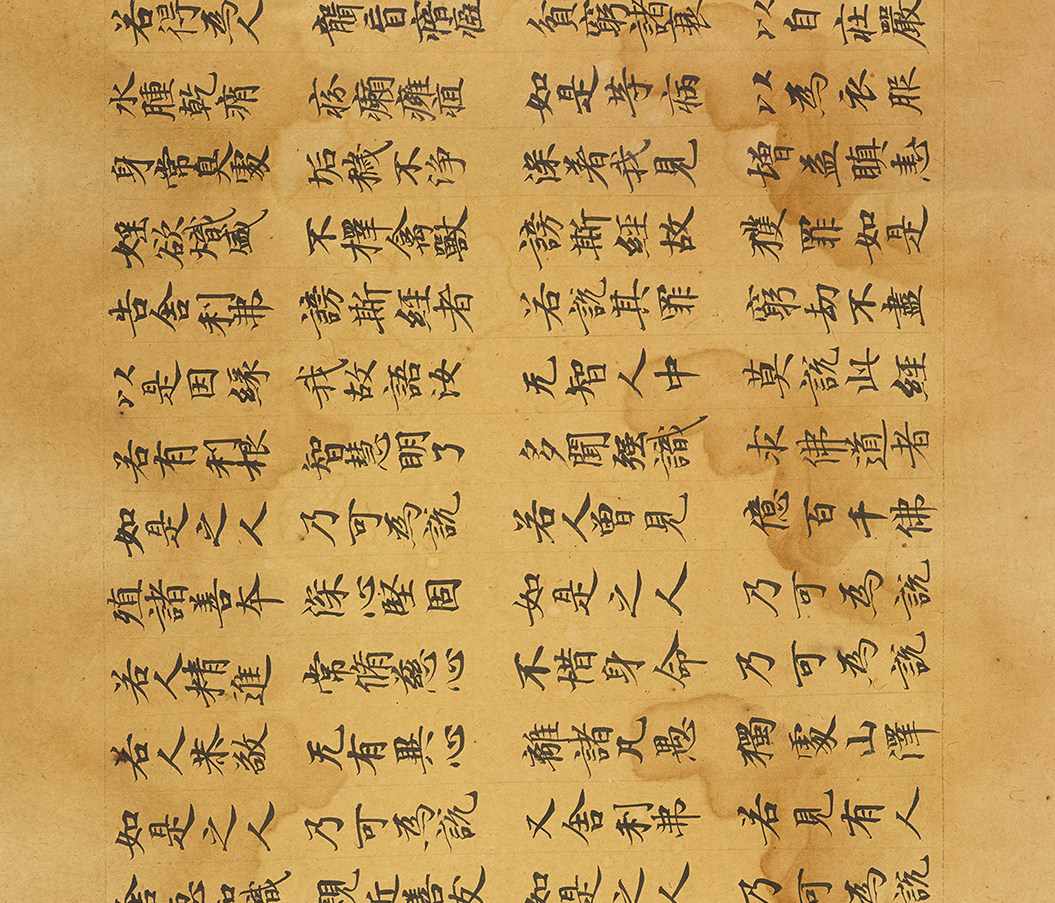 若得為人 聾盲瘖瘂 貧窮諸衰 以自莊嚴
水腫乾痟 疥癩癰疽 如是等病 以為衣服
身常臭處 垢穢不淨 深著我見 增益瞋恚
婬欲熾盛 不擇禽獸 謗斯經故 獲罪如是
告舍利弗 謗斯經者 若說其罪 窮劫不盡
以是因緣 我故語汝 无智人中 莫說此經
若有利根 智慧明了 多聞强識 求佛道者
如是之人 乃可為說 若人曾見 億百千佛
殖諸善本 深心堅固 如是之人 乃可為說
若人精進 常脩慈心 不惜身命 乃可為說
若人恭敬 无有異心 離諸凡愚 獨處山澤
如是之人 乃可為說 又舍利弗 若見有人
知識 親近善友 如是之人 乃可為說